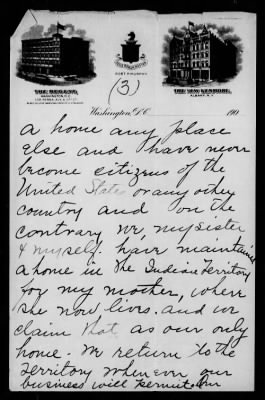 THE REGENT,
WASHINGTON, D.C.
(3)
THE NEW KENMORE,
ALBANY, N.Y.
Washington, D.C. 190
a home any place
else and have never
become citizens of the
United States or any other
country and on the
contrary we, my sister
& myself. have maintained
a home in The Indian Territory
for my mother, where
she now lives. and we
claim that as our only
home. We return to the
Territory whenever our
business will permit